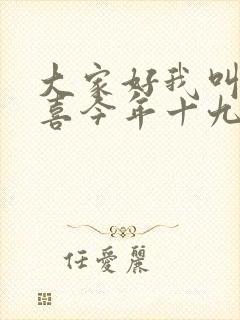 大家好我叫
喜今年十九
任愛麗